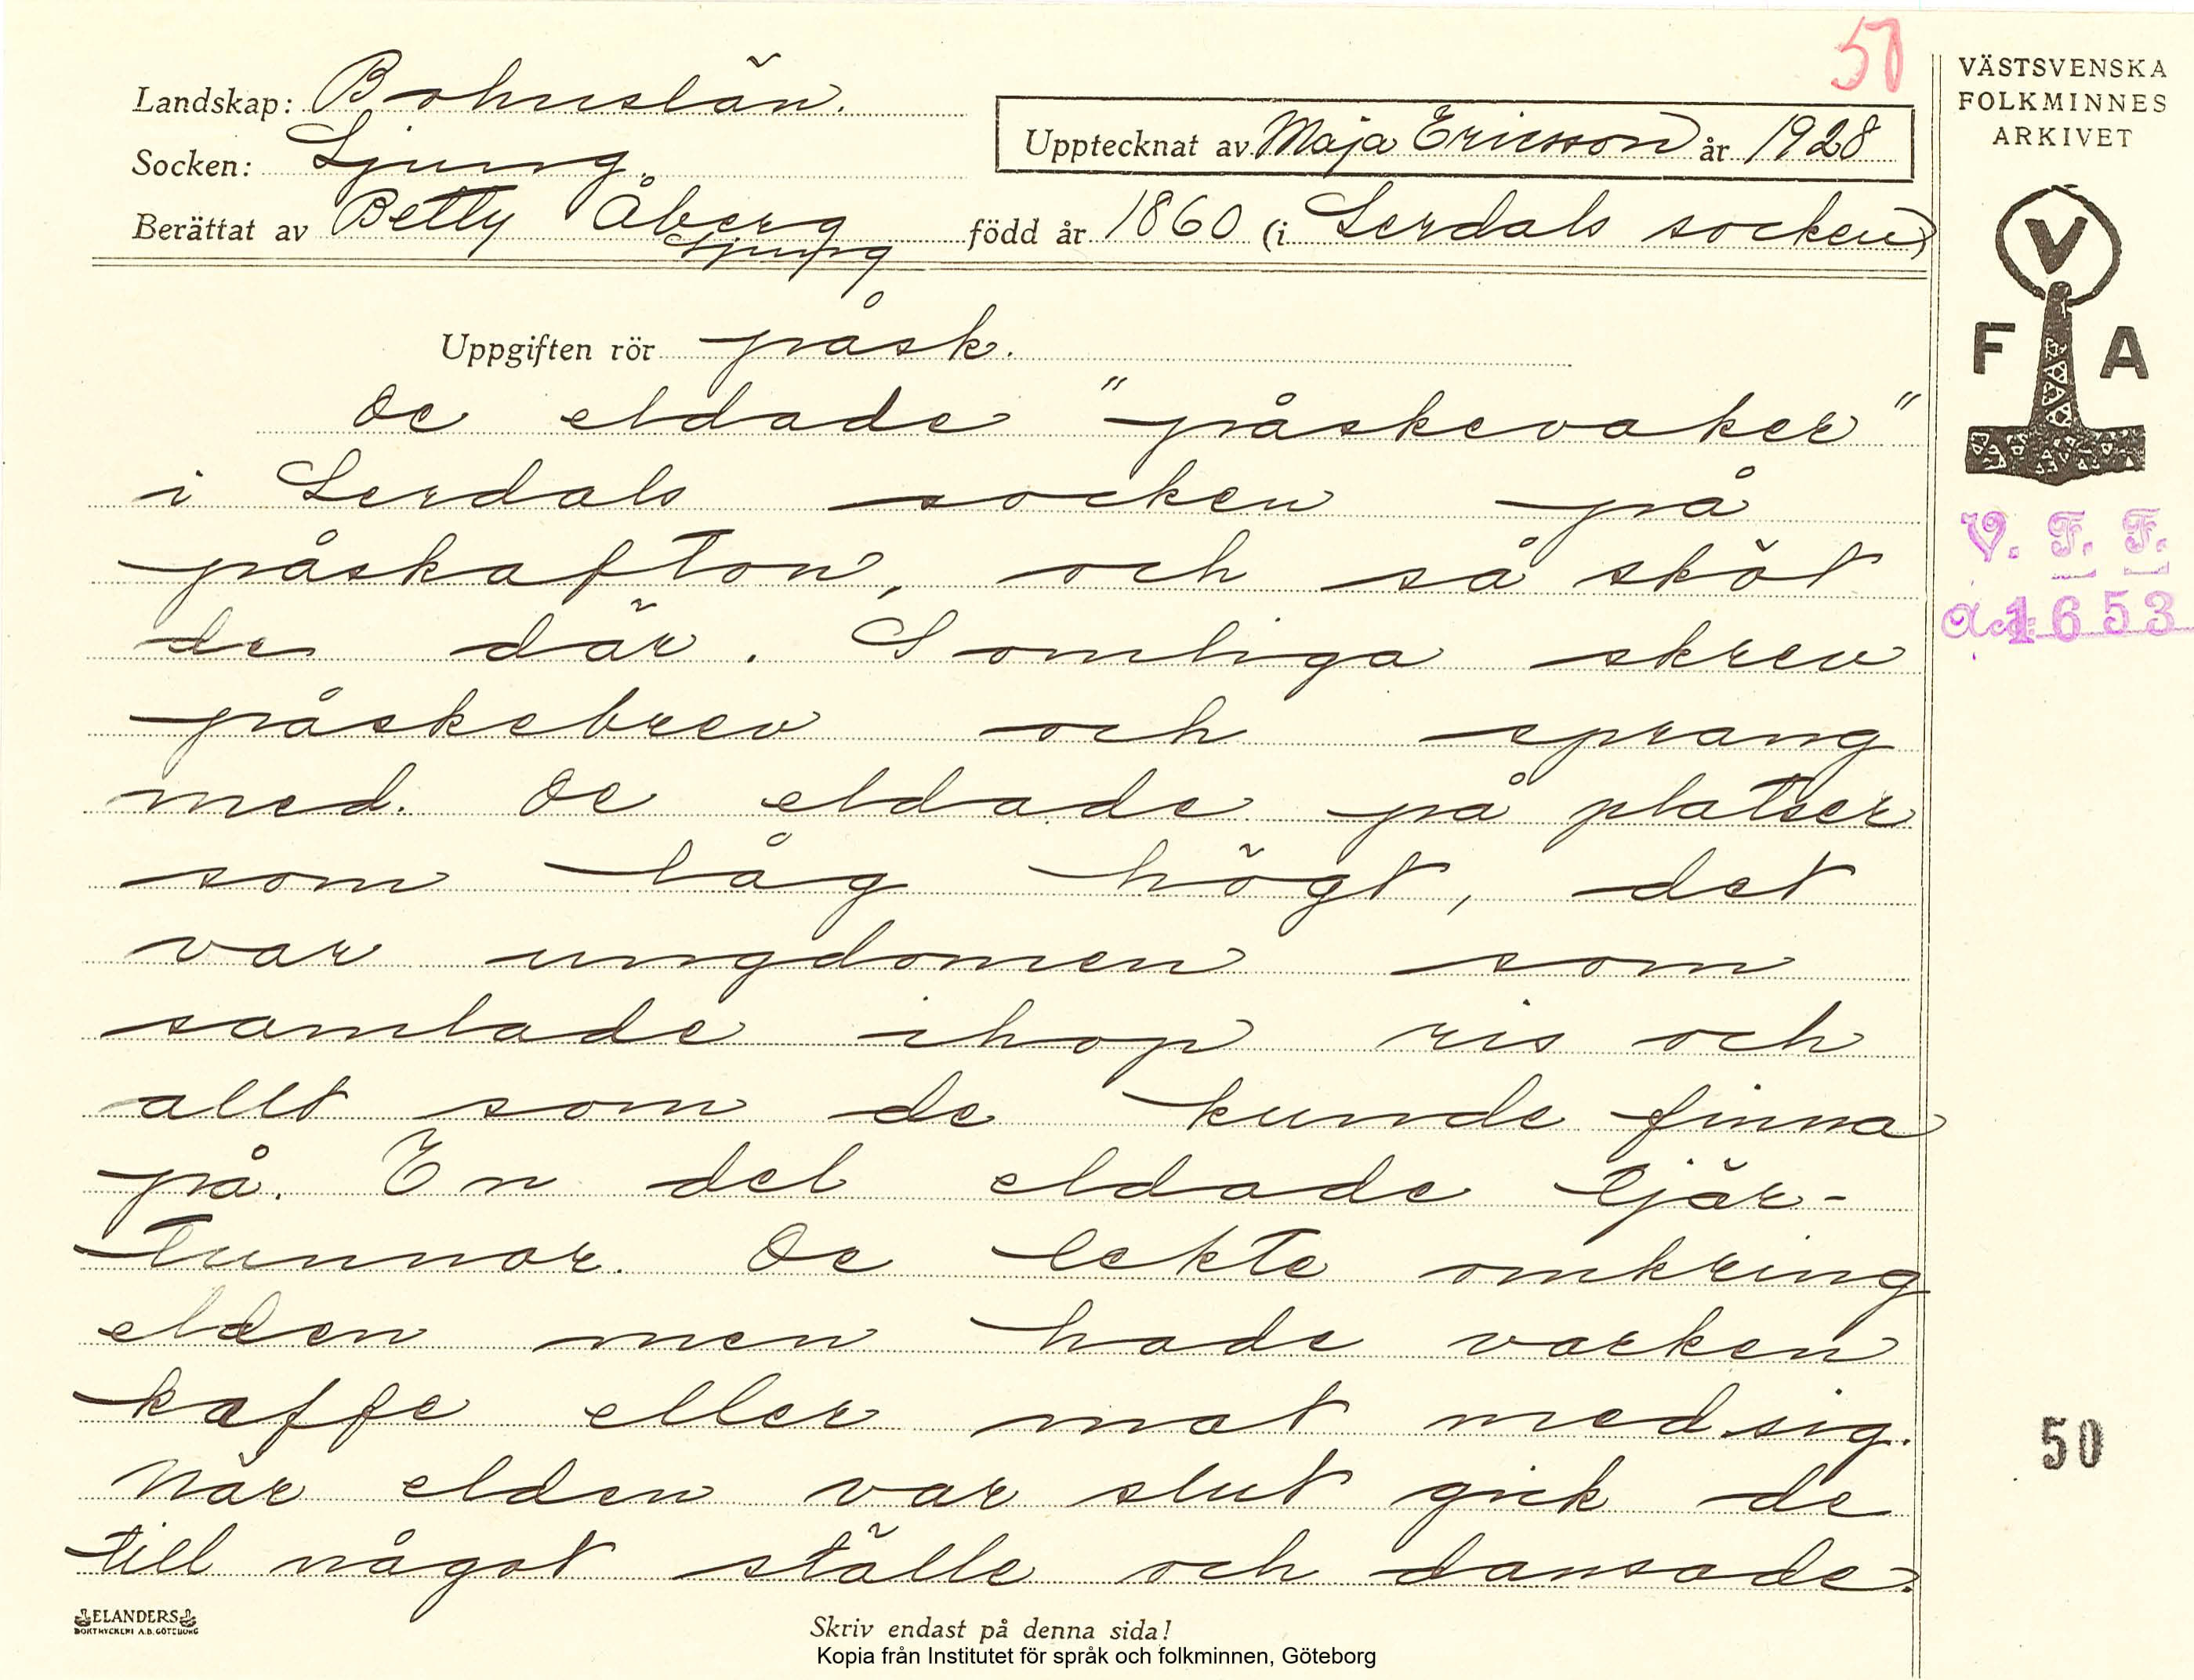 50
VÄSTSVENSKA
FOLKMINNES
ARKIVET
Landskap: Bohuslän.
Upptecknat av Maja Ericsson år 1928
Socken: Ljung
Berättat av Betty Åberg född år 1860 (i Lerdals socken)
Ljung
V
F A
Uppgiften rör påsk.
De eldade "påskevaker"
i Lerdals socken på
påskafton, och så sköt
de där. Somliga skrev
påskebrev och sprang
med. De eldade på platser
som låg högt, det
var ungdomen som
samlade ihop ris och
allt som de kunde finna
på. En del eldade tjär-
tunnor. De lekte omkring
elden men hade varken
kaffe eller mat med sig.
När elden var slut gick de
till något ställe och dansade.
V. F. F.
Acc. 1653
50
ELANDERS
BOKTRYCKERI A.B. GÖTEBORG
Skriv endast på denna sida!
Kopia från Institutet för språk och folkminnen, Göteborg